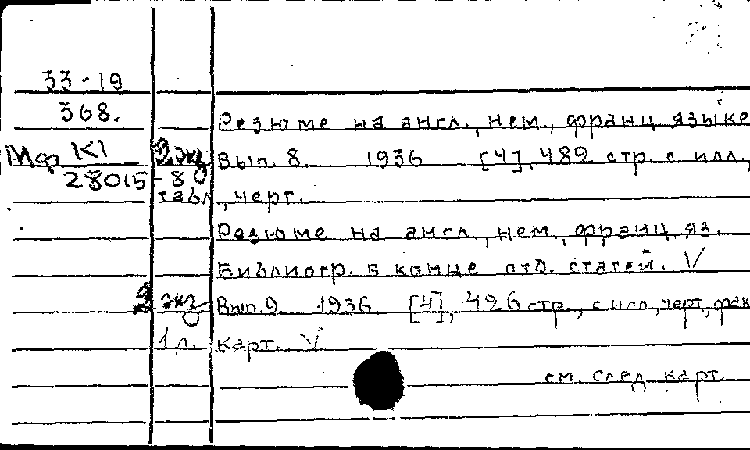 33-19
368.
Резюме на англ., нем., франц. языке
Мф К1 2 экз Вып. 8. 1936 [4], 489 стр. с илл.,
28015-80
табл., черт.
Резюме на англ., нем., франц. яз.
Библиогр. в конце отд. статей. V
2 экз Вып. 9. 1936 [4], 426 стр., с илл., черт., фак
1 л. карт. V
см. след. карт.